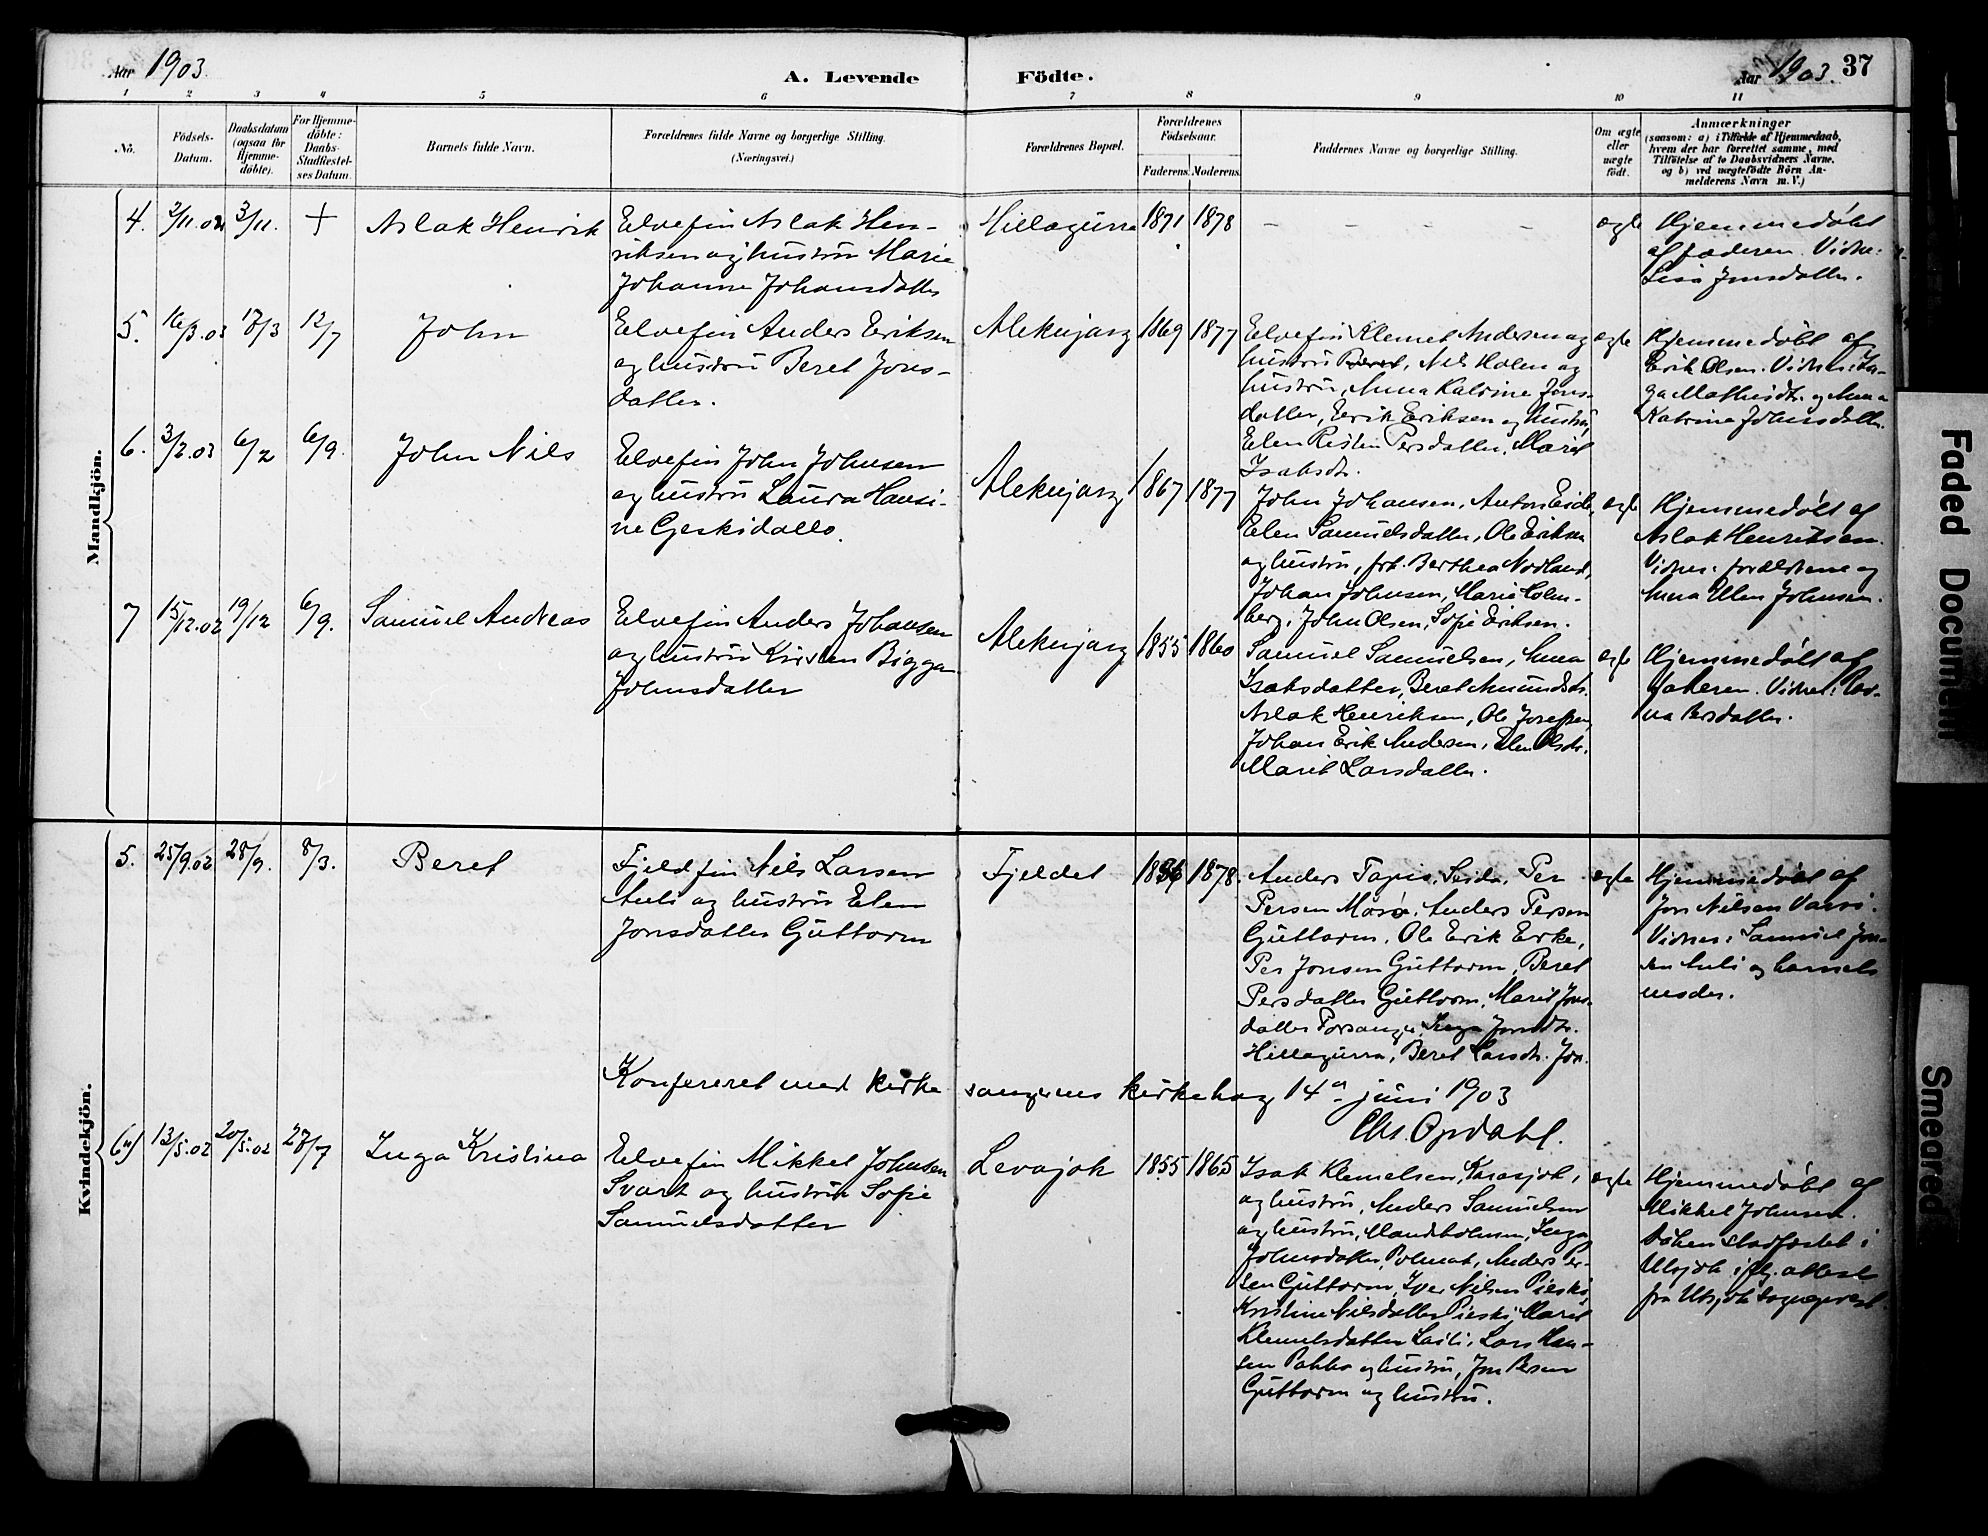 Aar 1903.
A. Levende Födte.
Aar 1903. 37
1 2 3 4 5 6 7 8 9 10 11
Nö.
Födsels-
Datum.
Daabsdatum
(ogsaa for
Hjemme-
döbte).
For Hjemme-
döbte:
Daabs-
Stadfæstel-
ses Datum.
Barnets fulde Navn.
Forældrenes fulde Navne og borgerlige Stilling.
(Næringsvei.)
Forældrenes Bopæl.
Forældrenes
Födselsaar.
Faderens. Moderens.
Faddernes Navne og borgerlige Stilling.
Om ægte
eller
uægte
födt.
Anmærkninger
(saasom: a) i Tilfælde af Hjemmedaab,
hvem der har forrettet samme, med
Tilföielse af to Daabsvidners Navne.
og b) ved uægtefödte Börn An-
melderens Navn m. V.)
Mandkjön.
4. 2/11.02 3/11. +
Aslak Henrik
Elvefin Aslak Hen-
riksen og hustru Marie
Johanne Johansdatter
Hillagurra 1871 1878
- - - - -
ægte
Hjemmedøbt
af faderen. Vidne:
Lisa Jonsdatter.
5. 16/3.03 17/3 12/7
John
Elvefin Anders Eriksen
og hustru Beret Jons-
datter.
Aleknjarg 1869 1877
Elvefin Klemet Andersen og
hustru Beret, Nils Holm og
hustru, Anna Katrine Jons-
datter, Erik Eriksen og hustru,
Elen Ristin Persdatter, Marit
Isaksdtr.
ægte
Hjemmedøbt af
Erik Olsen. Vidner: In-
ga Mathisdtr. og Anna
Katrine Johnsdatter.
6. 3/2.03 6/2 6/9.
John Nils
Elvefin John Johnsen
og hustru Laura Hansi-
ne Gerkisdatter.
Aleknjarg 1867 1877
John Johansen, Anton Eide,
Elen Samuelsdatter, Ole Eriksen
og hustru, frk. Berthea Nordland,
Johan Johnsen, Marie Holm-
berg, John Olsen, Sofie Eriksen.
ægte
Hjemmedøbt af
Aslak Henriksen.
Vidner: forældrene og
Anna Elen Johnsen.
7 15/12.02 19/12 6/9.
Samuel Andreas
Elvefin Anders Johansen
og hustru Kirsten Bigga
Johnsdatter
Aleknjarg 1855 1860
Samuel Samuelsen, Anna
Isaksdatter, Beret Amundsdtr.
Aslak Henriksen, Ole Josefsen,
Johan Erik Andersen, Elen Olsdtr.
Marit Larsdatter.
ægte
Hjemmedøbt af
faderen. Vidne: Rav-
na Persdatter.
Kvindekjön.
5. 25/9.02 28/9. 8/3.
Beret
Fjeldfin Nils Larsen
Anti og hustru Elen
Jonsdatter Guttorm
Fjeldet 1878.
Anders Tapio, Seida, Per
Persen Masø, Anders Persen
Guttorm, Ole Erik Erke,
Per Jonsen Guttorm, Beret
Persdatter Guttorm, Marit Jons-
datter Porsanger, Inga Jonsdtr.
Hillagurra, Beret Larsdtr. Jon.
ægte
Hjemmedøbt af
Jon Nilsen Varsi.
Vidner: Samuel Jon-
sen Anti og barnets
moder.
Konfereret med kirkesangerens kirkebog 14de juni 1903
Chr. Opdahl.
6) 13/5.02 20/5.02 27/7
Inga Kristina
Elvefin Mikkel Johnsen
Svart og hustru Sofie
Samuelsdatter
Levajok 1855 1865
Isak Klemetsen, Karasjok,
og hustru, Anders Samuelsen
og hustru, Mandsholmen, Inga
Johnsdatter, Polmak, Anders Per-
sen Guttorm, Iver Nilsen Pieski,
Kristine Nilsdatter Pieski, Marit
Klemetsdatter Laiti, Lars Han-
sen Pokka og hustru, Jon Persen
Guttorm og hustru.
ægte
Hjemmedøbt af
Mikkel Johnsen.
Dåben stadfæstet i
Utsjok iflg. attest
fra Utsjok sogneprest.
Faded Document
Smeared